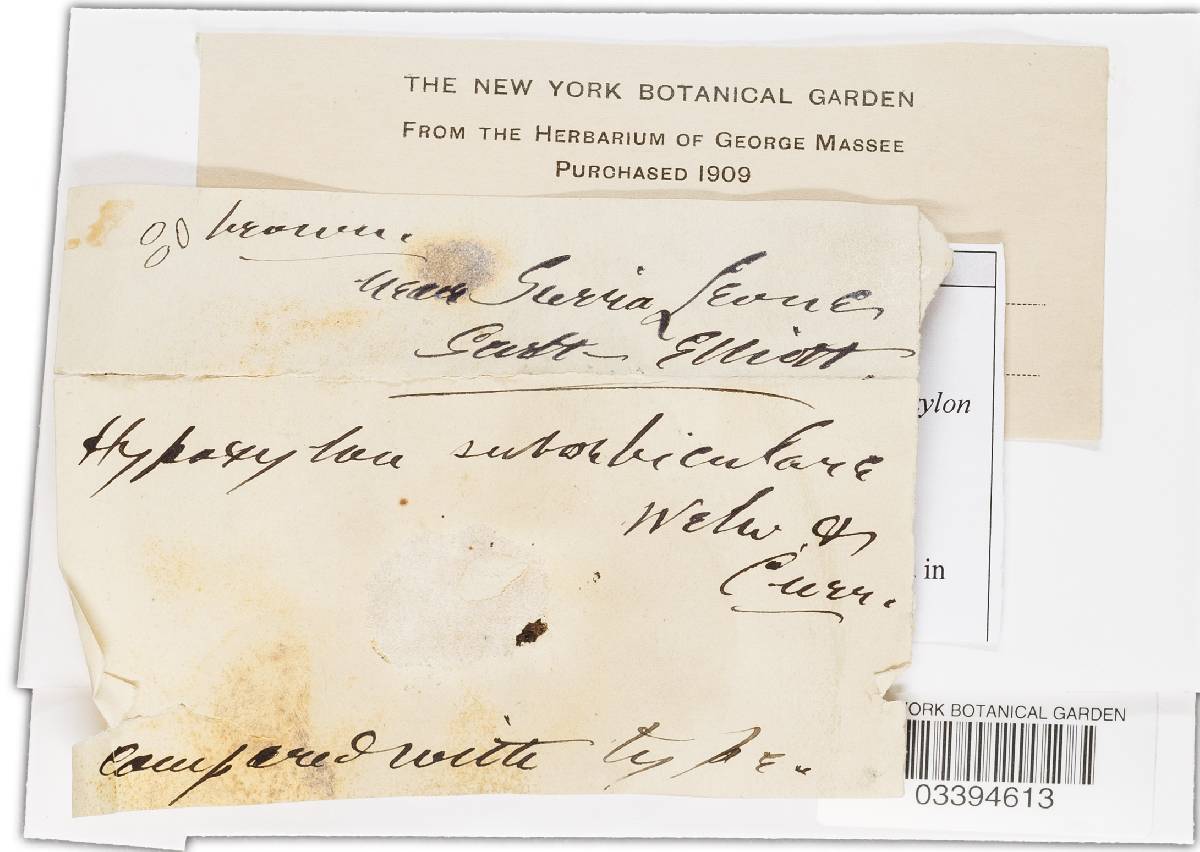 THE NEW YORK BOTANICAL GARDEN
FROM THE HERBARIUM OF GEORGE MASSEE
PURCHASED 1909
brown.
near Sierra Leone
Elliott.
Hypoxylon suborbiculare
Welw. &
Curr.
compared with type.
ylon
in
YORK BOTANICAL GARDEN
03394613